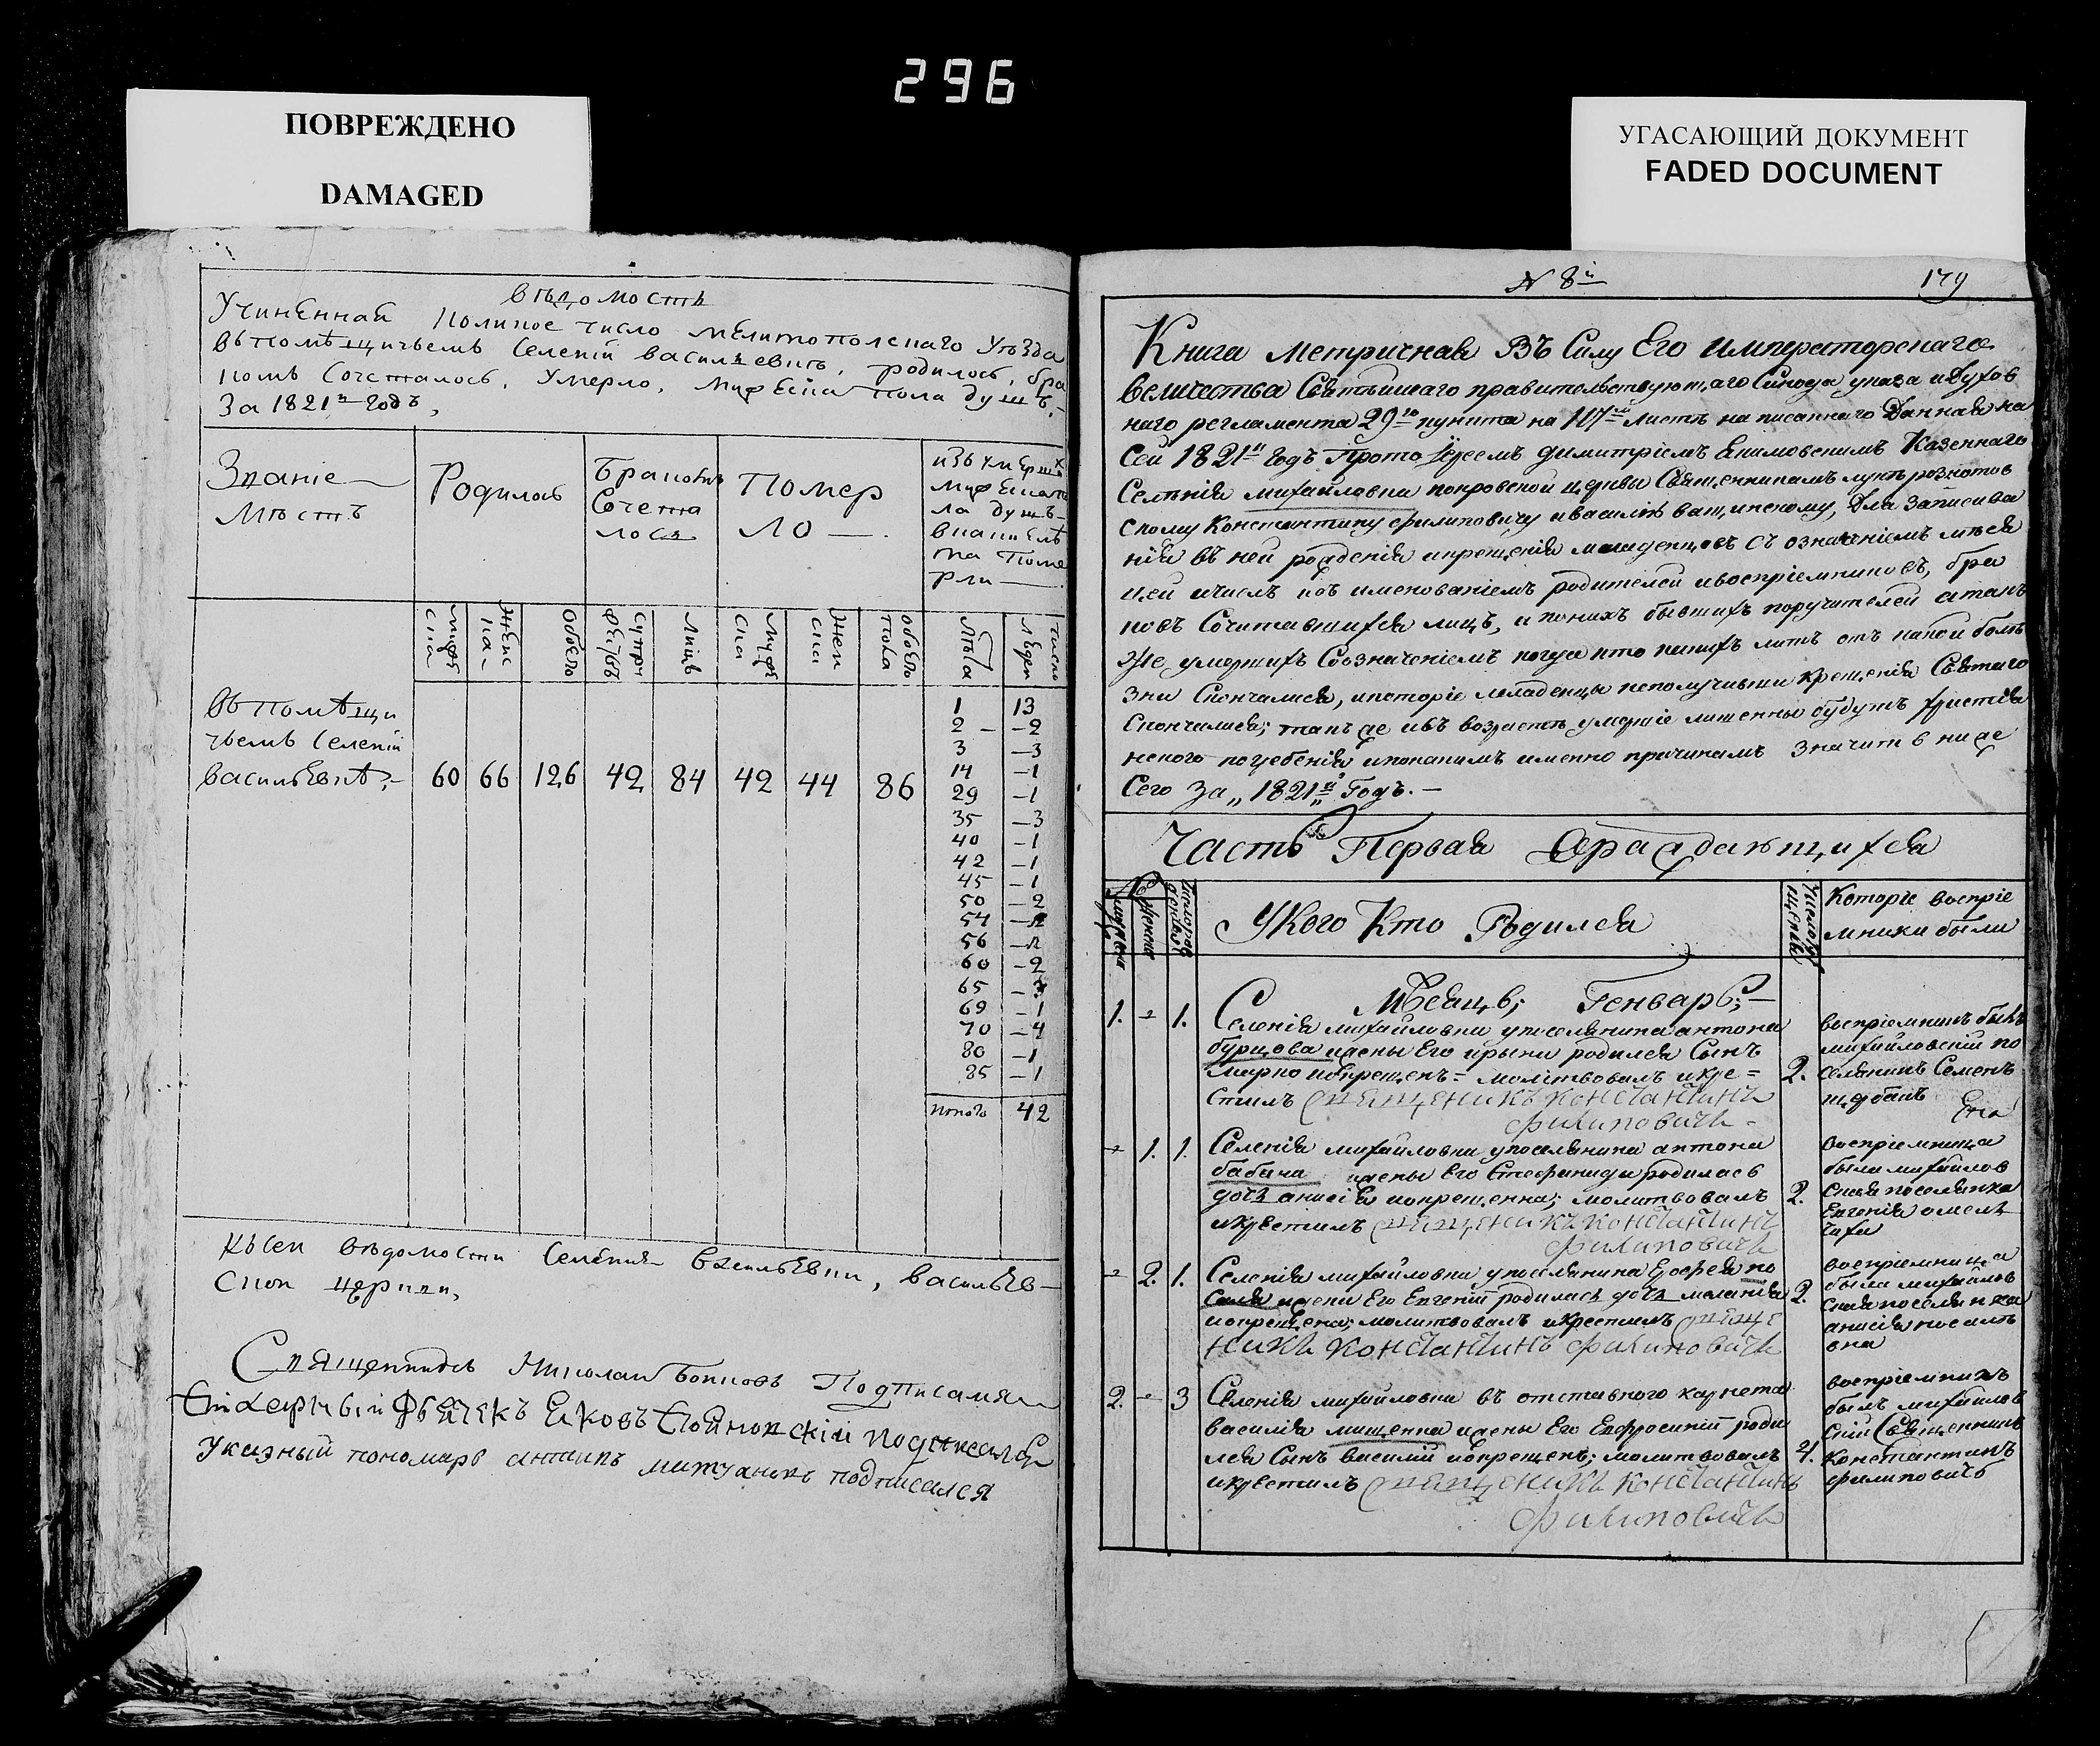 296
ПОВРЕЖДЕНО
DAMAGED
УГАСАЮЩИЙ ДОКУМЕНТ
FADED DOCUMENT
вѣдомость
Учиненная Коликое число мелитополскаго Уѣзда
вь помѣщичьемъ Селеніи василиевкѣ, родилось, бра
комъ Сочеталось, Умерло, Мужеска пола душъ,
За 1821й годъ,
Званіе
Мѣстъ
Родилось
Браковъ
Сочета
лося
Помер
ло
изъ умерши
ла душъ
рли
мужеска
женска
Обоего
Лицъ
мужеска
женска
обоего
пола
лѣта
число
вь помѣщи
чьемъ Селеніи
василЬевкѣ 60 66 126 42 84 42 44 86
1 13
2 2
3 3
14 1
29 1
35 3
40 1
42 1
45 1
50 2
54
56
60 2
65
69 1
70 4
80 1
85 1
итого 42
Къ сей вѣдомости Селения василЬевки, василЬев
ской церкви,
Священникъ Николай Подписался
Подписался
Указный пономарь антипъ подписался
N 8й
179
Книга Метричная Въ Силу Его Императорскаго
величества Святѣйшаго правительствующаго Синода указа и Духов
наго регламента 29го пункта на 117ти листѣ написаннаго Данная на
Сей 1821й Годъ Протоіереемъ Димитріемъ Екимовскимъ Казеннаго
Селѣнія михайловки покровской церквы Священникамъ
скому Константину филиповичу и василію, Для Записива
нія въ ней рожденія и крещенія младенцовъ съ означеніемъ мѣся
цей и числъ изъ именованіемъ родителей и воспріемниковъ, бра
ковъ Сочитавшихся лицъ, и по нихъ бывшихъ поручителей а так
же умершихъ Соозначеніемъ когда кто какихъ литъ отъ какой болѣ
зни Скончалися, и которіе младенцы неполучивши крещенія Святаго
Скончалися; такъ же и въ возрастѣ умершіе лишенны будутъ христія
нского погребенія и по какимъ именно причинамъ значитъ ниже
Сего За „1821й„ Годъ. —
Часть Первая О раждающихся
У Кого Кто Родился
Которіе воспріе
мники были
Мѣсяцъ; Генварь; —
1. - 1. Селенія михайловки у поселянина антона
бурцова жены Его ирыни родился Сынъ
марко и окрещенъ = молитвовалъ и кре =
стилъ Священикъ Константинъ
филиповичъ
2.
воспріемникъ былъ
михайловскій по
селянинъ Семенъ
щербакъ
- 1. 1. Селенія михайловки у поселянина антона
бабича жены Его Стефаниды родилась
дочь анисія и окрещенна; молитвовалъ
и крестилъ Священикъ Константинъ
филиповичъ
2.
воспріемница
была михайлов
ская поселянка
Евгенія
- 2. 1. Селенія михайловки у поселянина Ерофея по
жены Его Евгеніи родилась дочь маланія
и окрещена; молитвовалъ и крестилъ Свяще
никъ Константинъ филиповичъ
2.
воспріемница
была михайлов
ская поселянка
анисія
2. - 3 Селенія михайловки въ отставного карнета
василія мищенка жены Его Евфросиніи роди
лся Сынъ василій и окрещенъ; молитвовалъ
и крестилъ Священикъ Константинъ
филиповичъ
воспріемникъ
былъ михайлов
скій Священникъ
Константинъ
филиповичъ